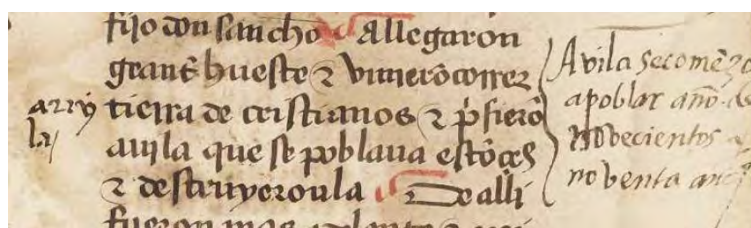 fijo don sancho Allegaron
grant hueste & vinierõ correr
tierra de cristianos & p̃sierõ
auila que se poblaua estõçes
& destruyeronla De alli
fueron mas adelante &
Avila se comẽzo
a poblar año de
novecientos
noventa